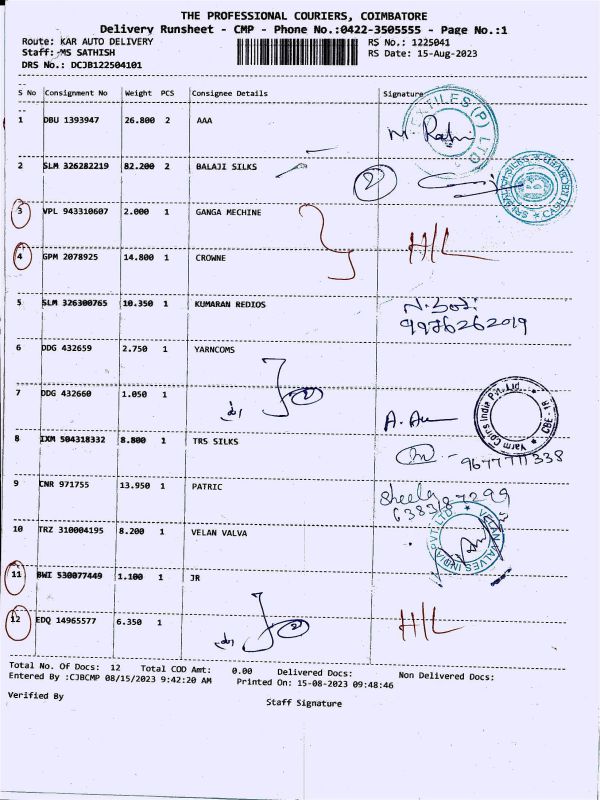 THE PROFESSIONAL COURIERS, COIMBATORE
Delivery Runsheet - CMP - Phone No.:0422-3505555 - Page No.:1
Route: KAR AUTO DELIVERY RS No.: 1225041
Staff: MS SATHISH RS Date: 15-Aug-2023
DRS No.: DCJB122504101
S No Consignment No Weight PCS Consignee Details Signature
1 DBU 1393947 26.800 2 AAA
2 SLM 326282219 82.200 2 BALAJI SILKS 2
3 VPL 943310607 2.000 1 GANGA MECHINE H/L
4 GPM 2078925 14.800 1 CROWNE
5 SLM 326300765 10.350 1 KUMARAN REDIOS
9976262019
6 DDG 432659 2.750 1 YARNCOMS
7 DDG 432660 1.050 1
8 IXM 504318332 8.800 1 TRS SILKS
9677711338
9 CNR 971755 13.950 1 PATRIC Sheela
6383187299
10 TRZ 310004195 8.200 1 VELAN VALVA
VELAN VALVES INDIA PVT. LTD
11 BWI 530077449 1.100 1 JR
12 EDQ 14965577 6.350 1 H/L
Total No. Of Docs: 12 Total COD Amt: 0.00 Delivered Docs: Non Delivered Docs:
Entered By :CJBCMP 08/15/2023 9:42:20 AM Printed On: 15-08-2023 09:48:46
Verified By Staff Signature